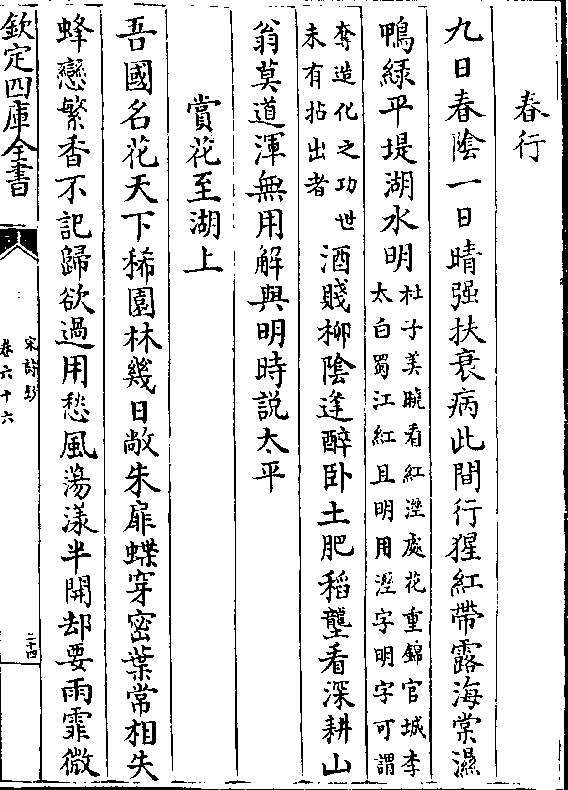 春行
九日春陰一日晴强扶衰病此間行猩紅帶露海棠濕
鴨緑平堤湖水明杜子美曉看紅溼處花重錦官城李
太白蜀江紅且明用溼字明字可謂
奪造化之功世
未有拈出者酒賤柳陰逢醉卧土肥稻壟看深耕山
翁莫道渾無用解與明時説太平
賞花至湖上
吾國名花天下稀園林幾日敞朱扉蝶穿密葉常相失
蜂戀繁香不記歸欲過用愁風蕩漾半開却要雨霏微
欽定四庫全書
宋詩鈔
卷六十六
二十四